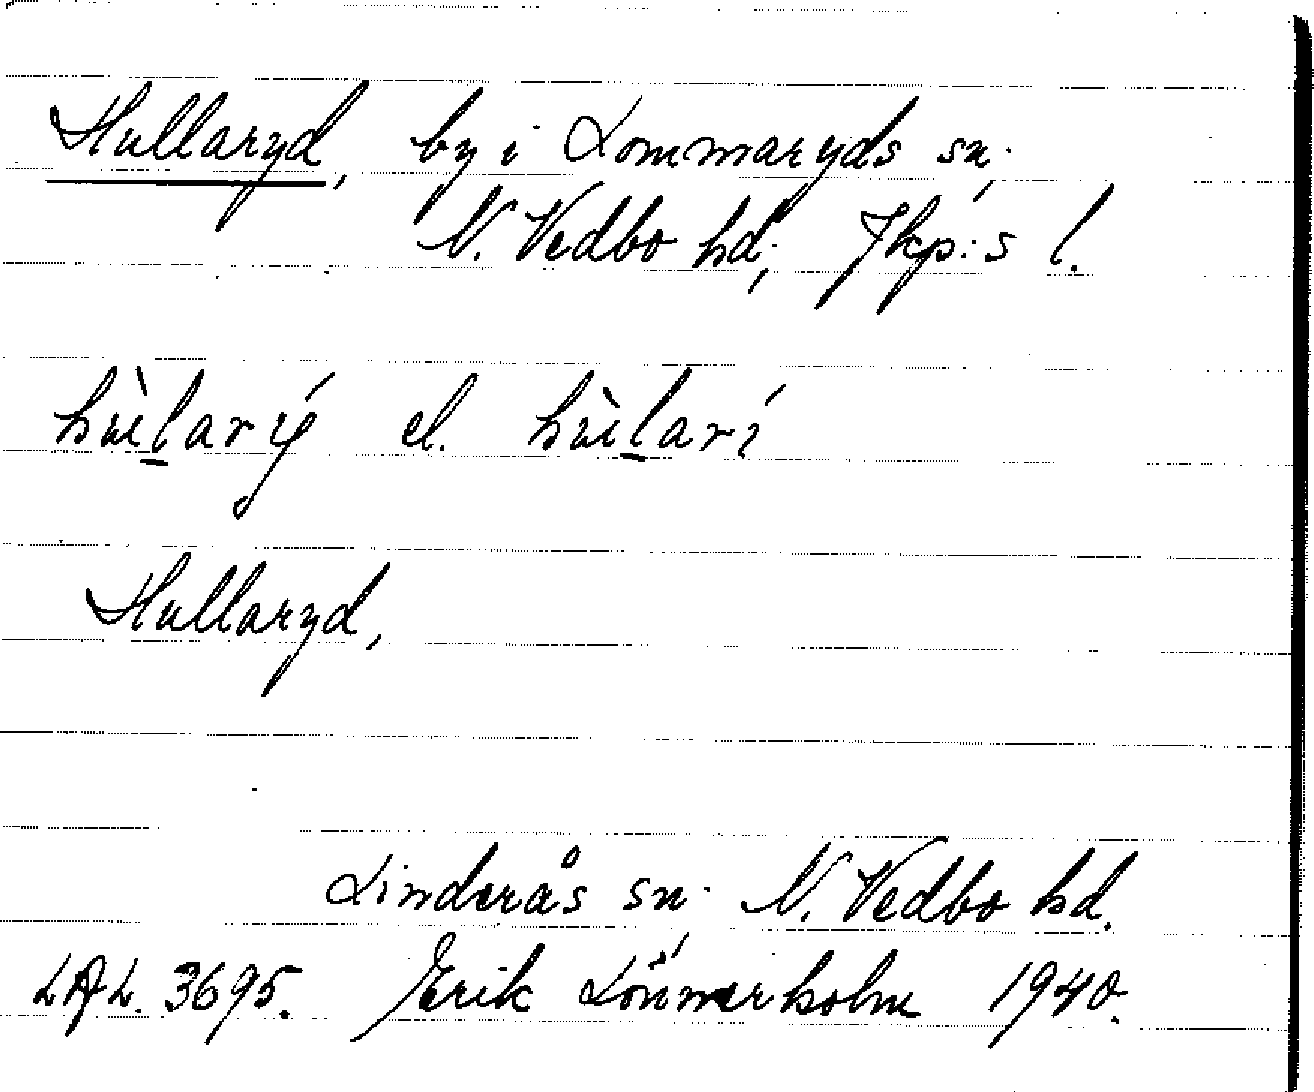 Hullaryd, by i Lommaryds sn.,
N. Vedbo hd., Jkp:s l.
hùl̠arý el. hùl̠arí
Hullaryd,
Linderås sn. N. Vedbo hd.
LAL. 3695. Erik Lönnerholm 1940.